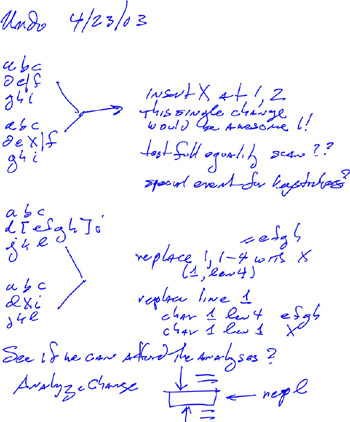 Undo 4/23/03
abc
de|f
ghi
abc
dex|f
ghi
insert X at 1, 2
This single change
would be awesome!!
test full equality scan??
special event for keystrokes?
abc
d[efgh]i
jkl
abc
dxi
jkl
= efgh
replace 1, 1-4 with X
(1, len 4)
replace line 1
char 1 len 4 efgh
char 1 len 1 X
See if we can afford the analyses?
Analyze change
repl